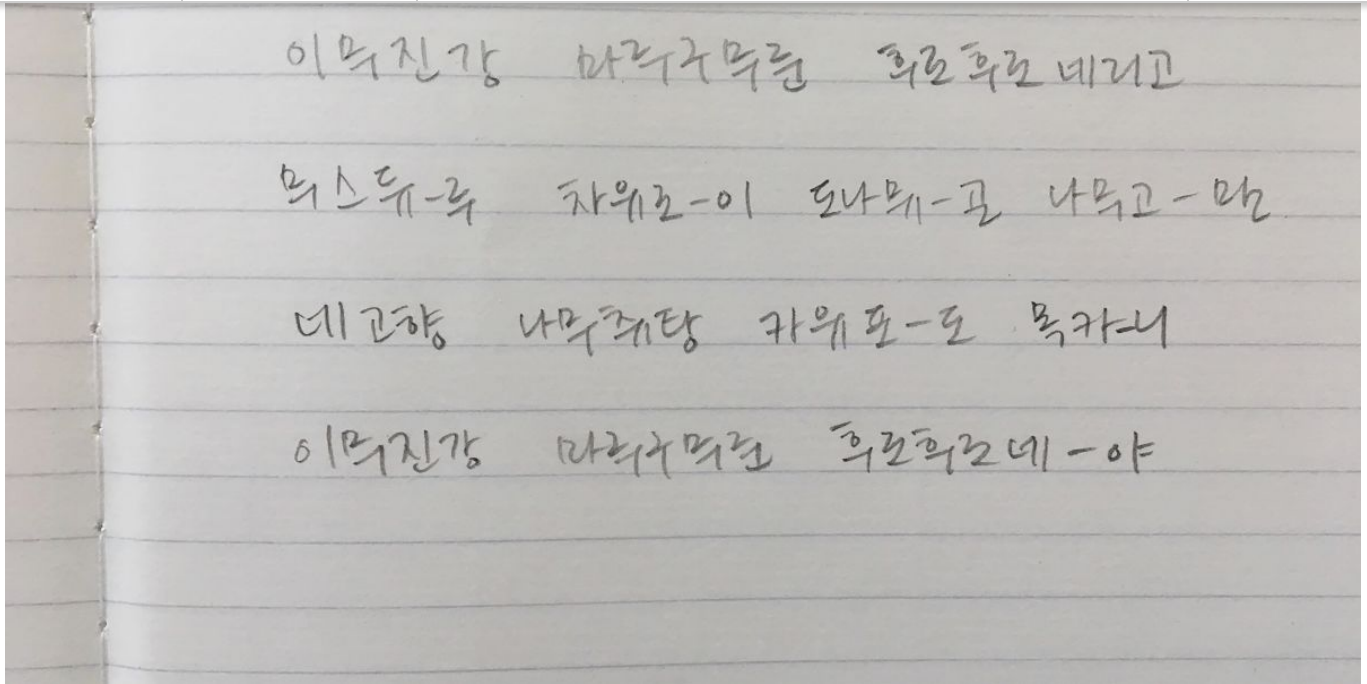 이무진강 마루구무룬 후로후로네리고
무스뒤-루 자위로-이 도나뮈-골 나무고-만
네고향 나무쥐탕 카위포-도 목카-니
이무진강 마루구무룬 후로후로네-야